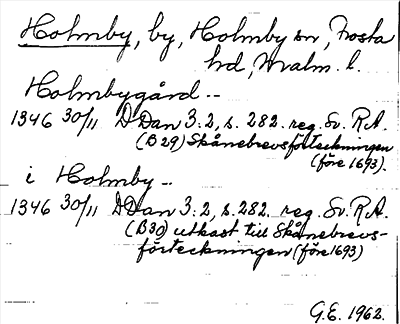 Holmby, by, Holmby sn, Frosta
hd, Malm. l.
Holmbygård --
1346 30/11 DDan 3:2, s. 282. reg. Sv. R.A.
(B29) Skånebrevsförteckningen
(före 1693).
i Holmby --
1346 30/11 DDan 3:2, s. 282. reg. Sv. R.A.
(B30) utkast till Skånebrevs-
förteckningen (före 1693)
G.E. 1962.